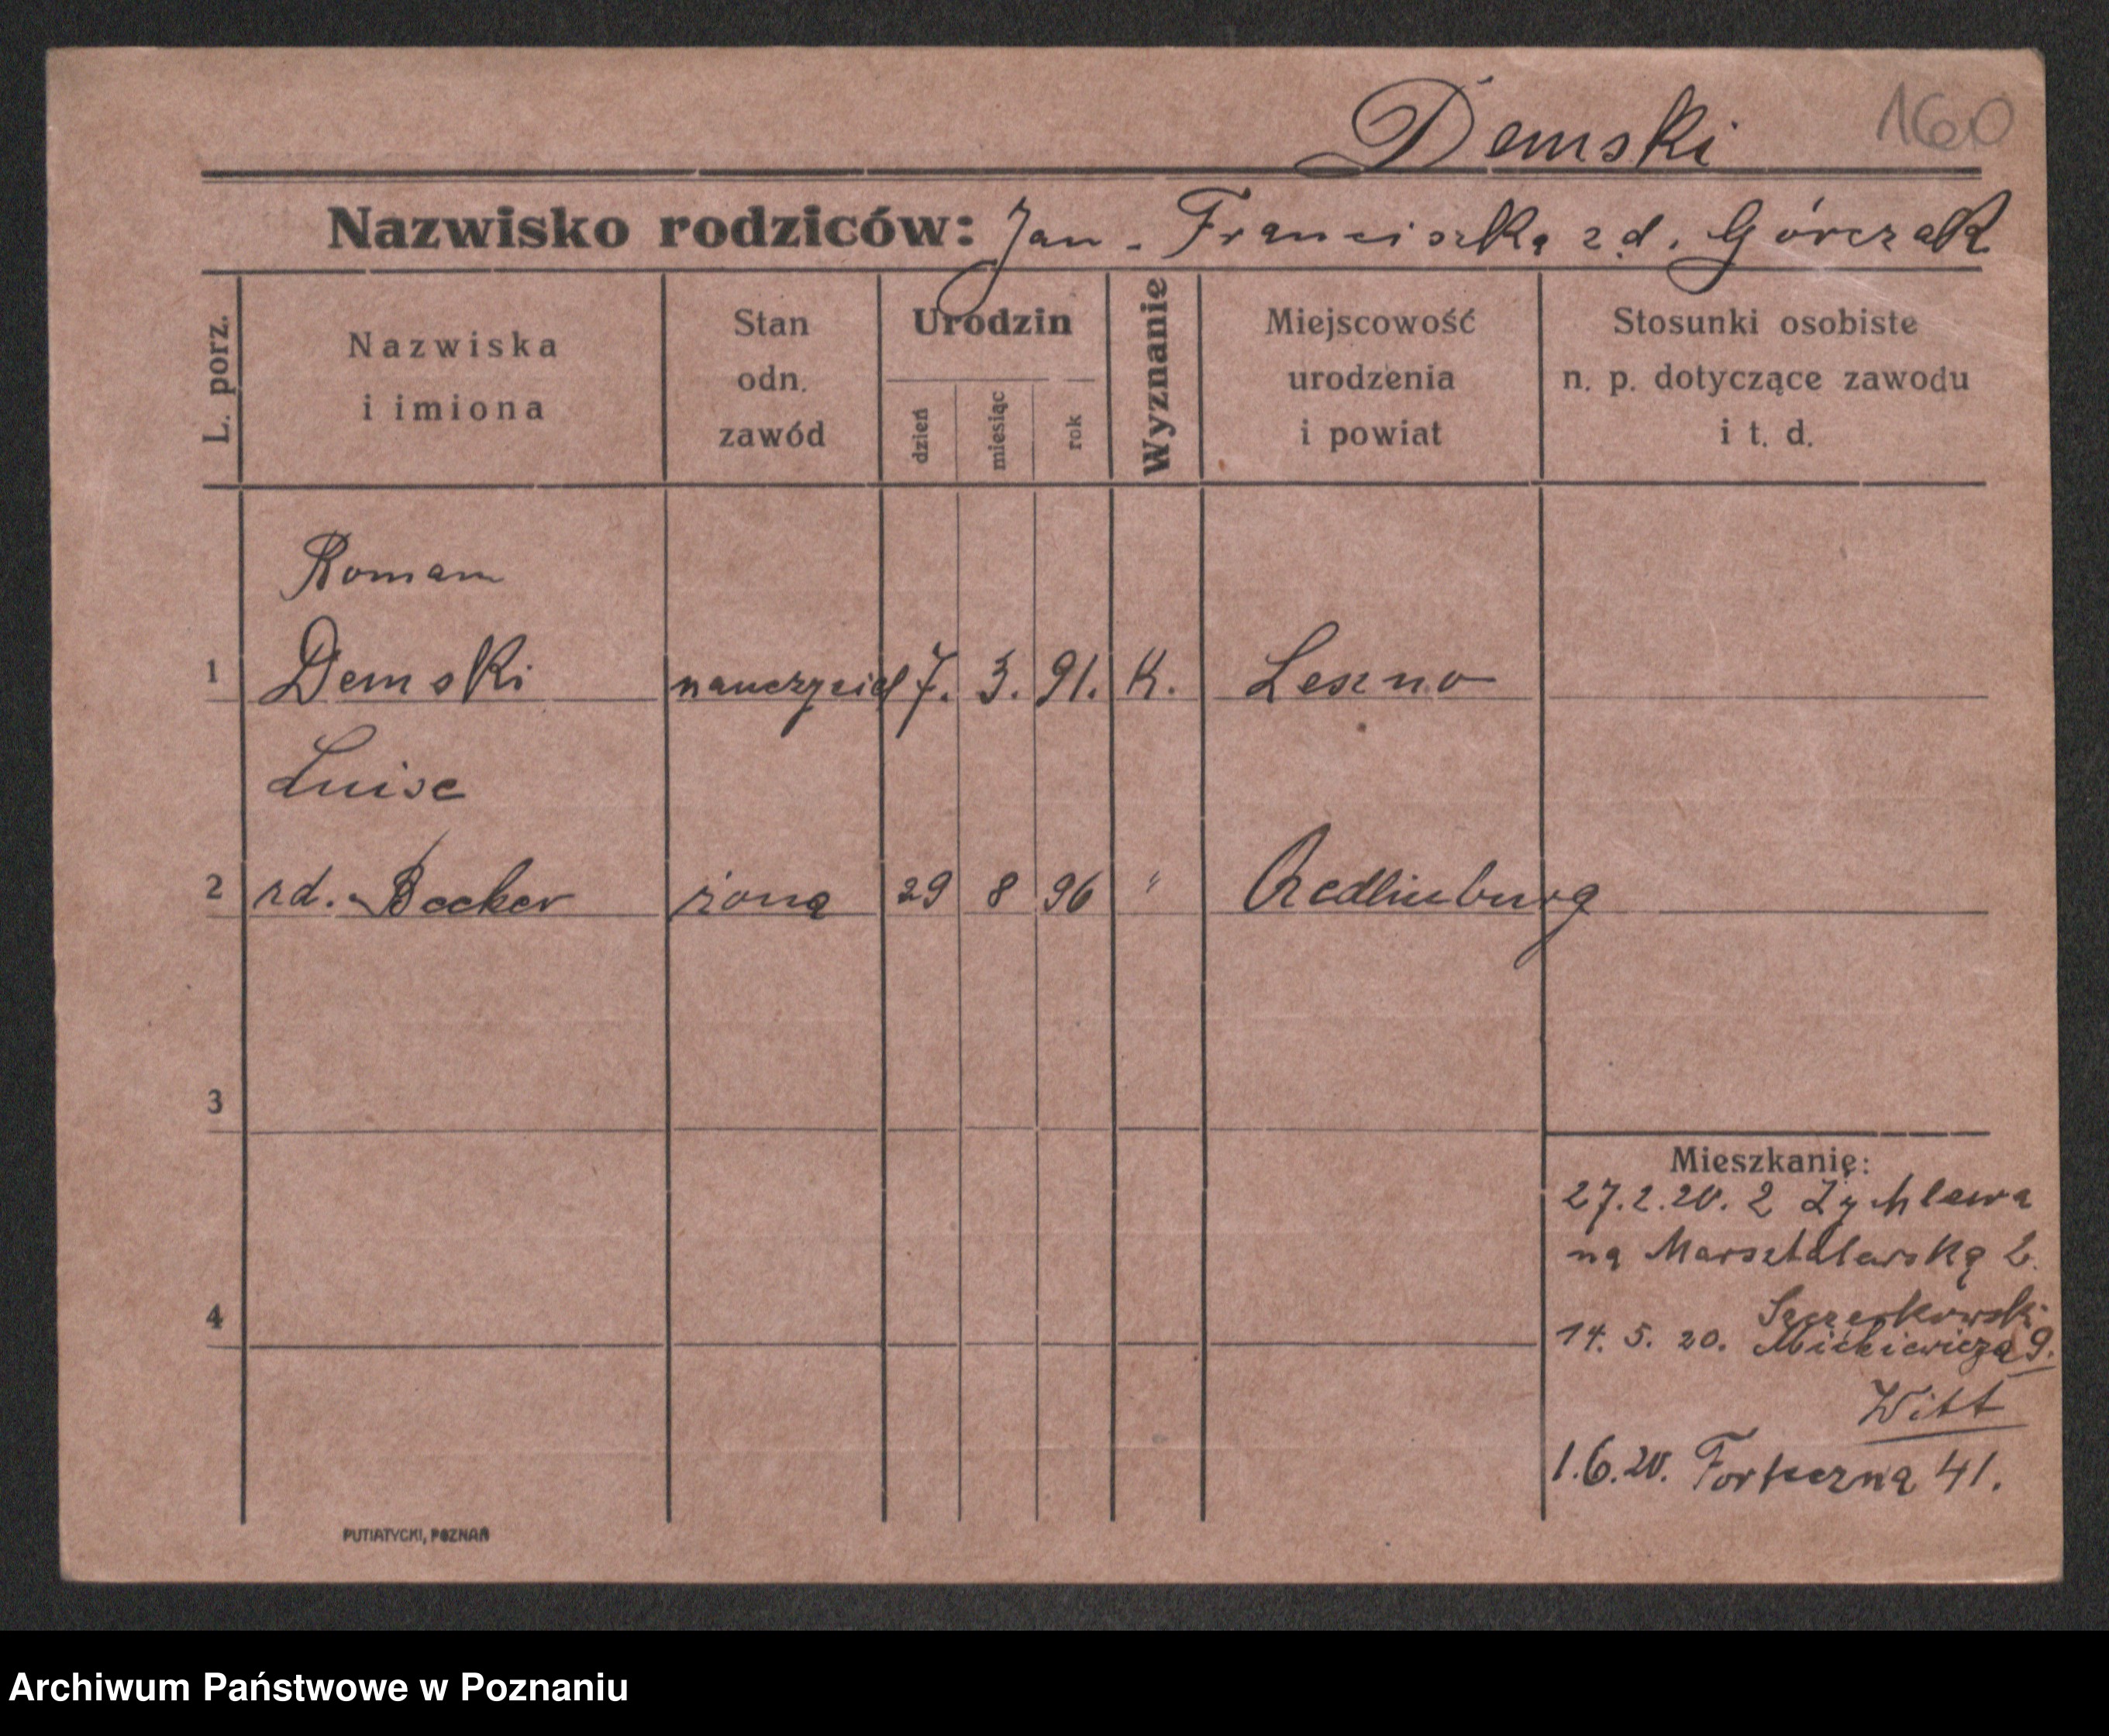 Demski 160
Nazwisko rodziców: Jan - Franciszka zd. Górczak
L. porz.
Nazwiska
i imiona
Stan
odn.
zawód
Urodzin
dzień
miesiąc
rok
Wyznanie
Miejscowość
urodzenia
i powiat
Stosunki osobiste
n. p. dotyczące zawodu
i t. d.
Roman
1 Demski nauczyciel 7. 3. 91. K. Leszno
Luise
2 zd. Becker żona 29 8 96 "
3
4
Mieszkanie:
27.2.20. z Żychlewa
na Marsztalarską 2.
14. 5. 20. Mickiewicza 9.
Witt
1.6.20. Forteczna 41.
PUTIATYCKI, POZNAŃ
Archiwum Państwowe w Poznaniu